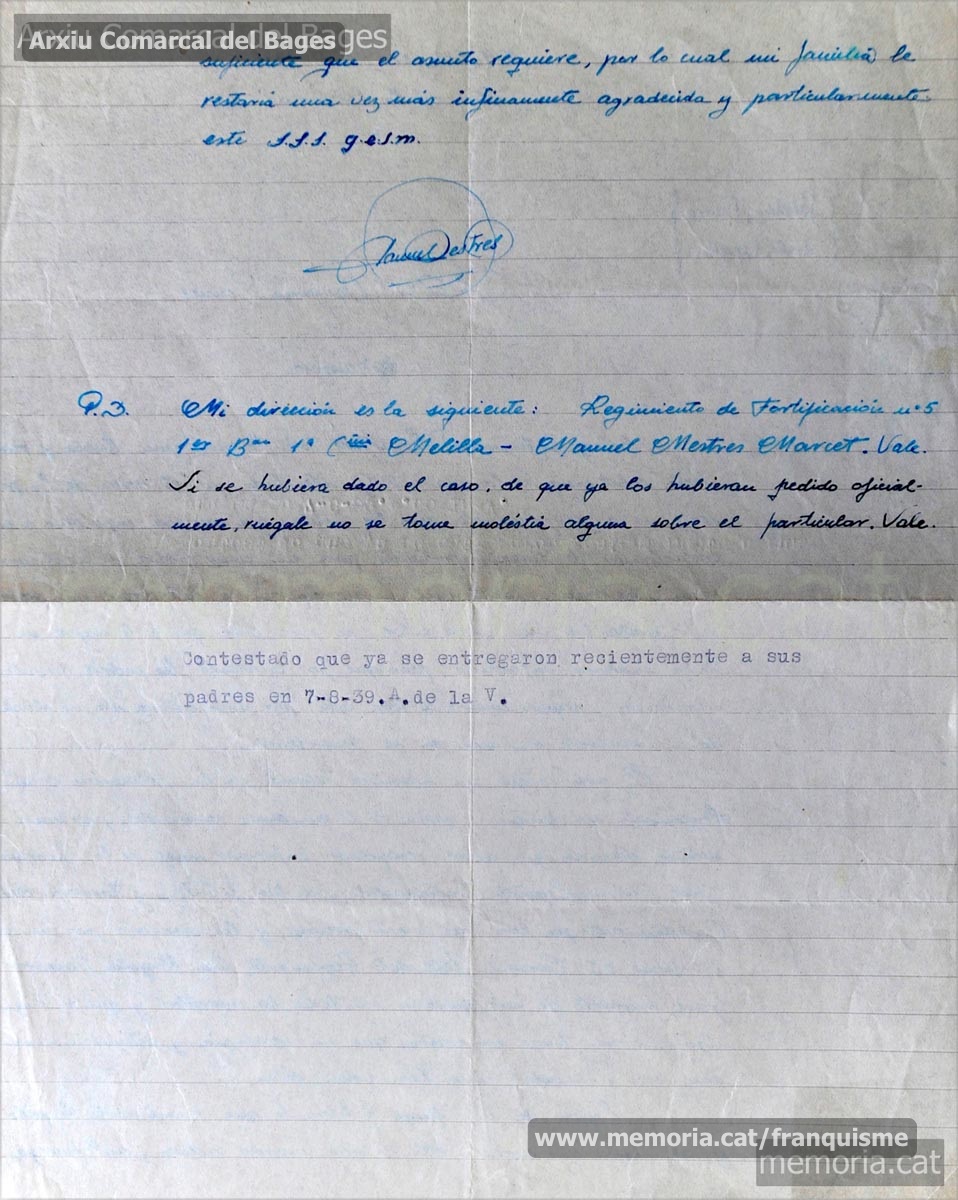 Arxiu Comarcal del Bages
Arxiu Comarcal del Bages
suficiente que el asunto requiere, por lo cual mi familia le
restaria una vez más infinamente agradecida y particularmente
este S.S.S. q.e.s.m.
Manuel Mestres
P.D. Mi dirección es la siguiente: Regimiento de Fortificación nº 5
1er Bon 1ª Cia Melilla - Manuel Mestres Marcet. Vale.
Si se hubiera dado el caso, de que ya los hubieran pedido oficial-
mente, ruégale no se tome moléstia alguna sobre el particular. Vale.
Contestado que ya se entregaron recientemente a sus
padres en 7-8-39.A.de la V.
www.memoria.cat/franquisme
memoria.cat